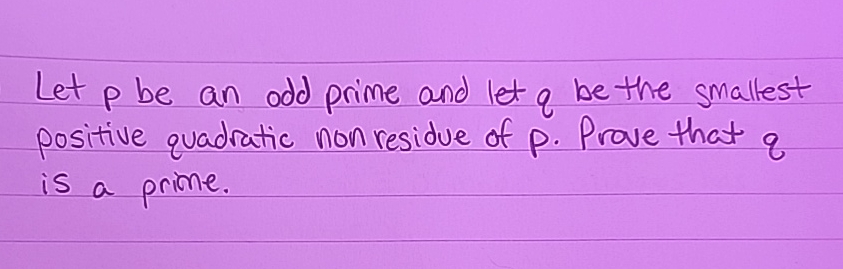 Let p be an odd prime and let q be the smallest
positive quadratic non residue of p. Prove that q
is a prime.